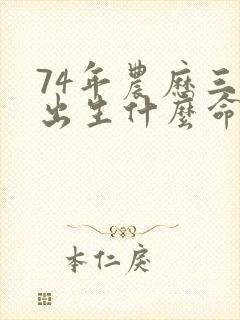 74年農歷三
出生什麼命
本仁戾